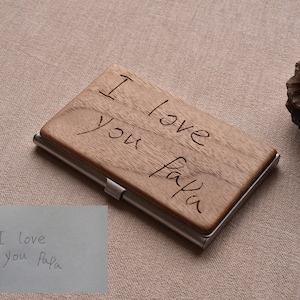 I love
you PaPa
I love
you PaPa